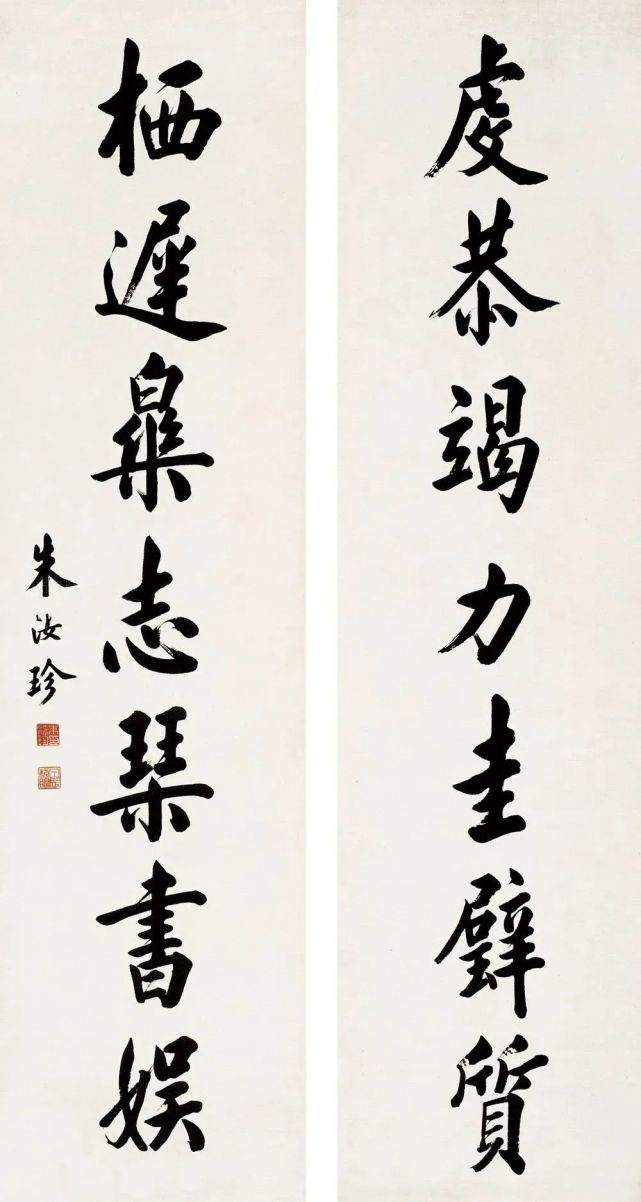 虔恭竭力圭璧質
栖遲樂志琴書娱
朱汝珍